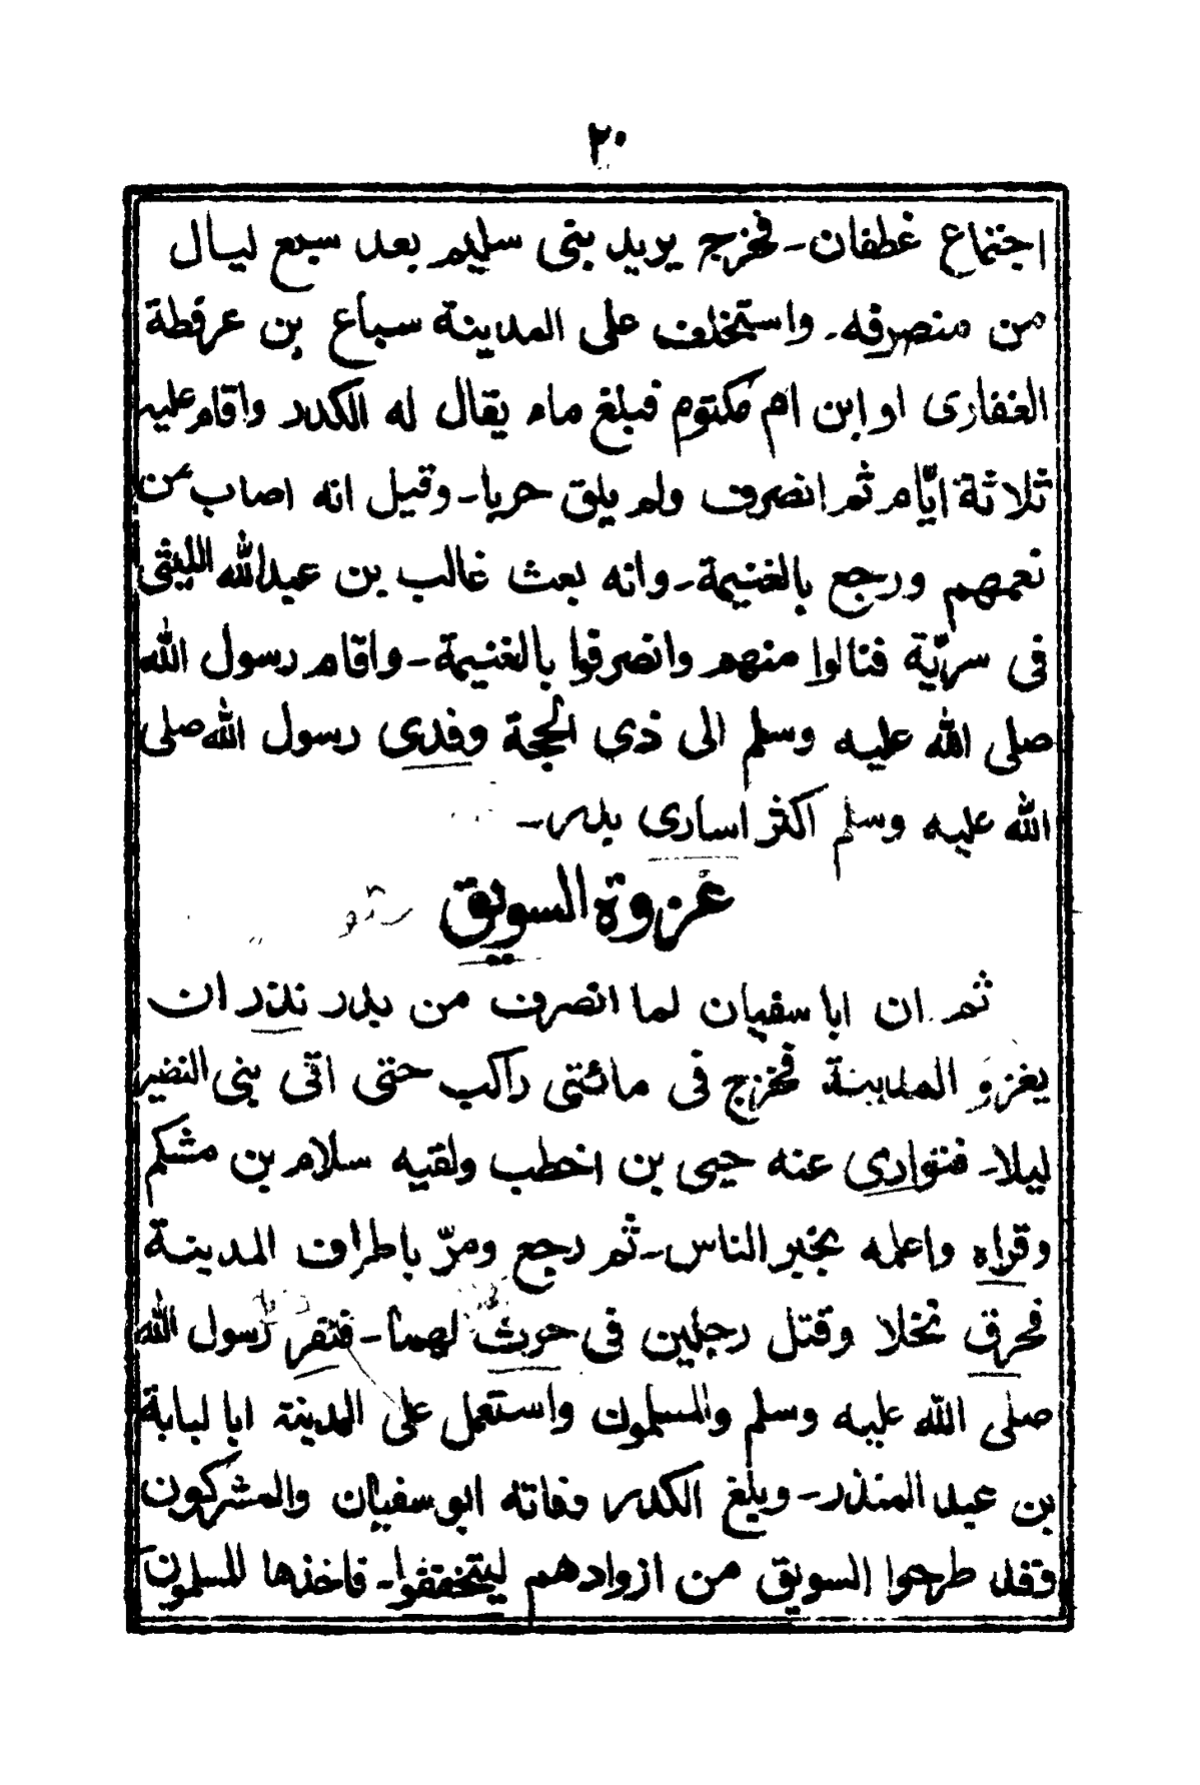 ٢٠
اجتماع غطفان- فخرج يريد بنى سليم بعد سبع ليال
من منصرفه- واستخلف على المدينة سباع بن عرفطة
الغفارى او ابن ام مكتوم فبلغ ماء يقال له الكدر واقام عليه
ثلاثة ايّام ثم انصرف ولم يلق حربا- وقيل انه اصاب من
نعمهم ورجع بالغنيمة- وانه بعث غالب بن عبدالله الليثى
فى سريّة فنالوا منهم وانصرفوا بالغنيمة- واقام رسول الله
صلى الله عليه وسلم الى ذى الحجة وفدى رسول الله صلى
الله عليه وسلم اكثر اسارى بدر-
غزوة السويق
ثم ان ابا سفيان لما انصرف من بدر نذر ان
يغزو المدينة فخرج فى مائتى راكب حتى اتى بنى النضير
ليلا- فتوارى عنه حيى بن اخطب ولقيه سلام بن مشكم
وقراه واعلمه بخبر الناس- ثم رجع ومرّ باطراف المدينة
فحرق نخلا وقتل رجلين فى حرث لهما- فنفر رسول الله
صلى الله عليه وسلم والمسلمون واستعمل على المدينة ابا لبابة
بن عبد المنذر- وبلغ الكدر وفاته ابو سفيان والمشركون
وقد طرحوا السويق من ازوادهم ليتخففوا- فاخذها المسلمون